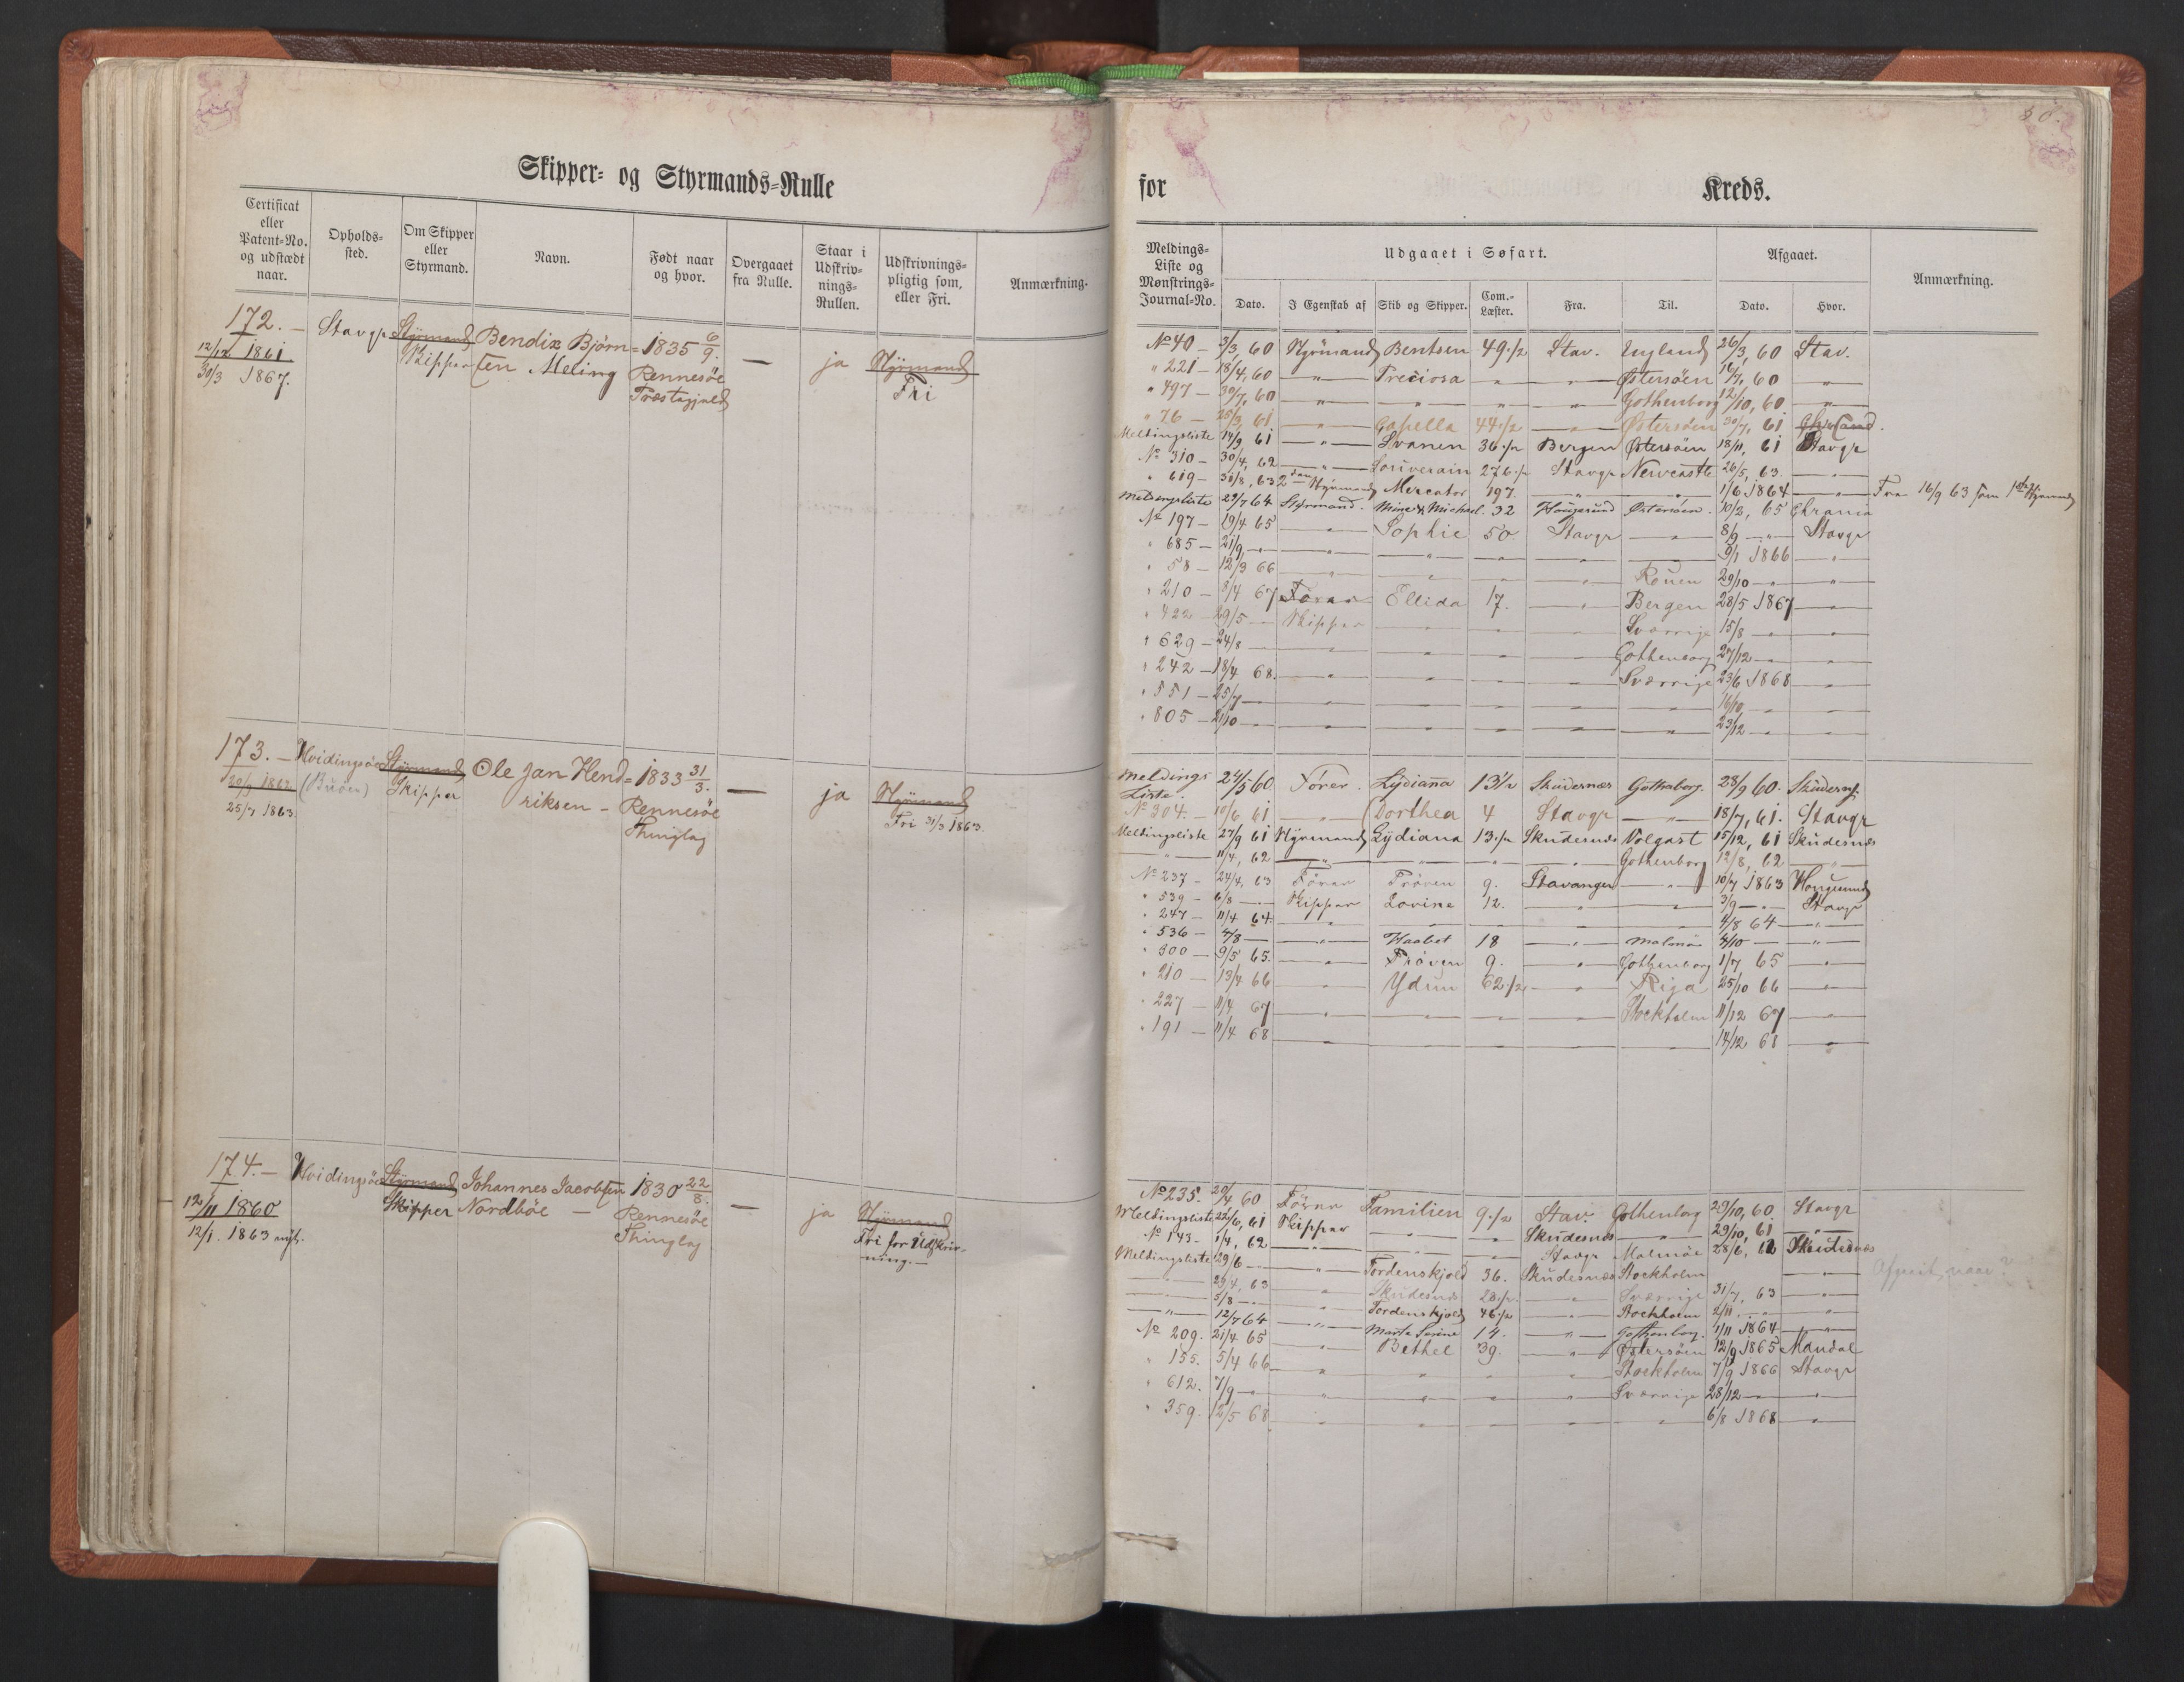 Skipper- og Styrmands-Rulle
Certificat eller Patent-No. og udstædt naar.
Opholds-sted.
Om Skipper eller Styrmand.
Navn.
Født naar og hvor.
Overgaaet fra Rulle.
Staar i Udskriv-nings-Rullen.
Udskrivnings-pligtig som, eller Fri.
Anmærkning.
172. — Stavgr Styrmand Bendix Bjørn= 1835 6/9. — ja Styrmand
12/12 1861 Skipper sen Meling Rennesöe Fri
30/3 1867. Præstegjeld
173. — Hvidingsöe Styrmand Ole Jan Hend= 1833 31/3. — ja Styrmand
20/3 1862 (Buöen) Skipper riksen — Rennesöe Fri 31/3 1863.
25/7 1863 Thinglag
174. — Hvidingsöe Styrmand Johannes Jacobsen 1830 22/8. — ja Styrmand
12/11 1860 Skipper Nordböe — Rennesöe Fri for Udskriv-
12/1. 1863 nyt. Thinglag ning. —
for Kreds.
Meldings-Liste og Mønstrings-Journal-No.
Udgaaet i Søfart.
Dato. I Egenskab af Skib og Skipper. Com.-Læster. Fra. Til.
Afgaaet.
Dato. Hvor.
Anmærkning.
No 40 — 3/3, 60 Styrmand Bentsen 49 1/2 Stav. England 26/3, 60 Stav.
" 221 — 18/4, 60 — " — Preciosa — " — — " — Östersöen 16/7, 60 — " —
" 497 — 30/7, 60 — " — — " — — " — — " — Gothenborg 12/10, 60 — " —
" 76 — 25/3, 61 — " — Capella 44 1/2 — " — Östersöen 30/7, 61
Meldingsliste 14/9 61 — " — Svanen 36 1/2 Bergen Östersöen 18/11, 61 Stavgr
No 310 — 30/4, 62 — " — Souverain 276 1/2 Stavgr Newcastle 26/5, 63. — " —
" 619 — 31/8, 63 2den Styrmand Mercator 197. — " — — " — 1/6 1864 — " — Fra 16/9 63 som 1ste Styrmand
Meldingsliste 29/7 64 Styrmand. Mine & Michael. 32 Haugesund Östersöen. 10/2, 65
No 197 — 19/4 65 — " — Sophie 50. Stavgr — " — 8/9 — " — Stavgr
" 685 — 21/9, — " — — " — — " — — " — — " — 9/1 1866 — " —
" 58 — 12/3 66 — " — — " — — " — — " — Rouen 29/10 — " — — " —
" 210 — 3/4 67 Förer Ellida 17. — " — Bergen 28/5 1867 — " —
" 422 — 29/5 — Skipper — " — — " — — " — Sverrige 15/8 — " — — " —
" 629 — 24/8 — — " — — " — — " — — " — Gothenborg 27/12 — " — — " —
" 242 — 18/4 68. — " — — " — — " — — " — Sverrige 23/6 1868 — " —
" 551 — 25/7 — — " — — " — — " — — " — — " — 16/10, — " — — " —
" 805 — 21/10 — — " — — " — — " — — " — — " — 23/12 — " — — " —
Meldings Liste. 24/5 60 Förer. Lydianna 13 1/2 Skudesnæs Gothaborg. 28/9 60. Skudesns.
No 304. — 10/6 61 — " — Dorthea 4 Stavgr — " — 18/7, 61. Stavgr
Meldingsliste 27/9 61 Styrmand Lydiana 13 1/2 Skudesnæs Volgast 15/12, 61 Skudesnæs
— " — 11/4, 62 — " — — " — — " — — " — Gothenborg 12/8, 62 — " —
No 237 — 24/4, 63 Förer Pröven 9. Stavanger — " — 10/7 1863 Haugesund
" 539 — 6/8 — Skipper Lovine 12. — " — — " — 3/9 — " — Stavgr
" 247 — 11/4 64. — " — — " — — " — — " — — " — 4/8 64 — " —
" 536 — 4/8 — — " — Haabet 18 — " — Malmøe 4/10 — — " —
" 300 — 9/5 65. — " — Pröven 9. — " — Gothenborg 1/7 65 — " —
" 210 — 13/4 66 — " — Ydun 62 1/2 — " — Riga 25/10 66 — " —
" 227 — 11/4 67 — " — — " — — " — — " — Stockholm 11/12 67 — " —
" 191 — 11/4 68 — " — — " — — " — — " — — " — 14/12 68 — " —
No 235. 20/4 60 Förer Familien 9 1/2 Stav. Gothenborg 29/10, 60. Stavgr
Meldingsliste 22/6, 61 Skipper — " — — " — Skudesnæs — " — 29/10, 61 — " —
No 143 — 1/4, 62 — " — — " — — " — Stavgr Malmöe 28/6, 62 Skudesnæs
Meldingsliste 29/6 — — " — Tordenskjold 36. Skudesnæs Stockholm — " —
— " — 29/4, 63 — " — Skudesnæs 28 1/2. — " — Sverrige 31/7, 63 — " —
— " — 5/8 — — " — Tordenskjold 46 1/2 — " — Stockholm 2/11 — " — — " —
— " — 12/7 64 — " — Marta Serine 14. — " — Gothenborg. 1/11 1864 — " —
No 209. 21/4 65 — " — Bethel 39. — " — Östersöen 12/9 1865 Mandal
" 155. 5/4 66 — " — — " — — " — — " — Stockholm 7/9 1866 Stavgr
" 612. 7/9 — — " — — " — — " — — " — Sverrige 28/12 — — " —
" 359. 12/5 68 — " — — " — — " — — " — — " — 6/8 1868 — " —